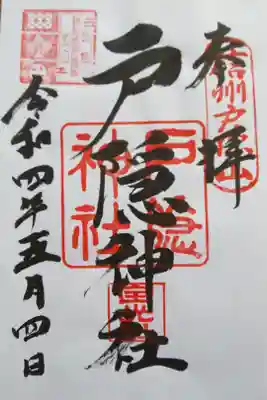 奉拝
信州戸隠山
戸隠神社
戸隠神社
令和四年五月四日